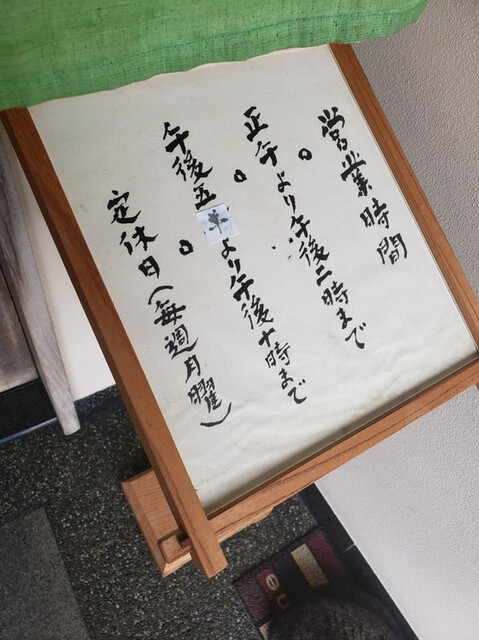 営業時間
正午より午後二時まで
午後五半より午後十時まで
定休日(毎週月曜)